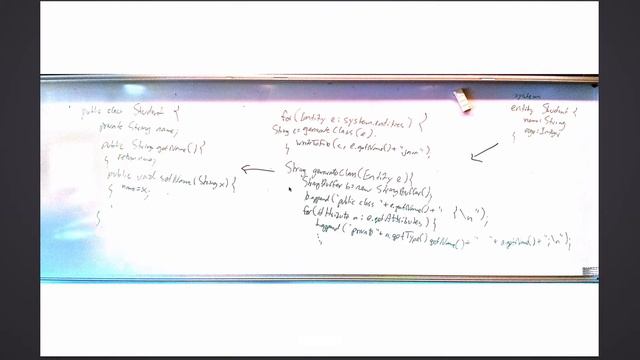 public class Student {
private String name;
public String getName() {
return name;
public void setName(String x) {
name=x;
}
for(Entity e: system.entities) {
String c = generateClass(e);
writeToFile(c, e.getName()+"java");
String generateClass(Entity e) {
StringBuffer b=new StringBuffer();
b.append("public class "+e.getName()+" {\n");
for(Attribute a: e.getAttributes) {
b.append("private "+a.getType().getName()+" "+a.getName()+";\n");
system
entity Student {
name: String
age: Integer